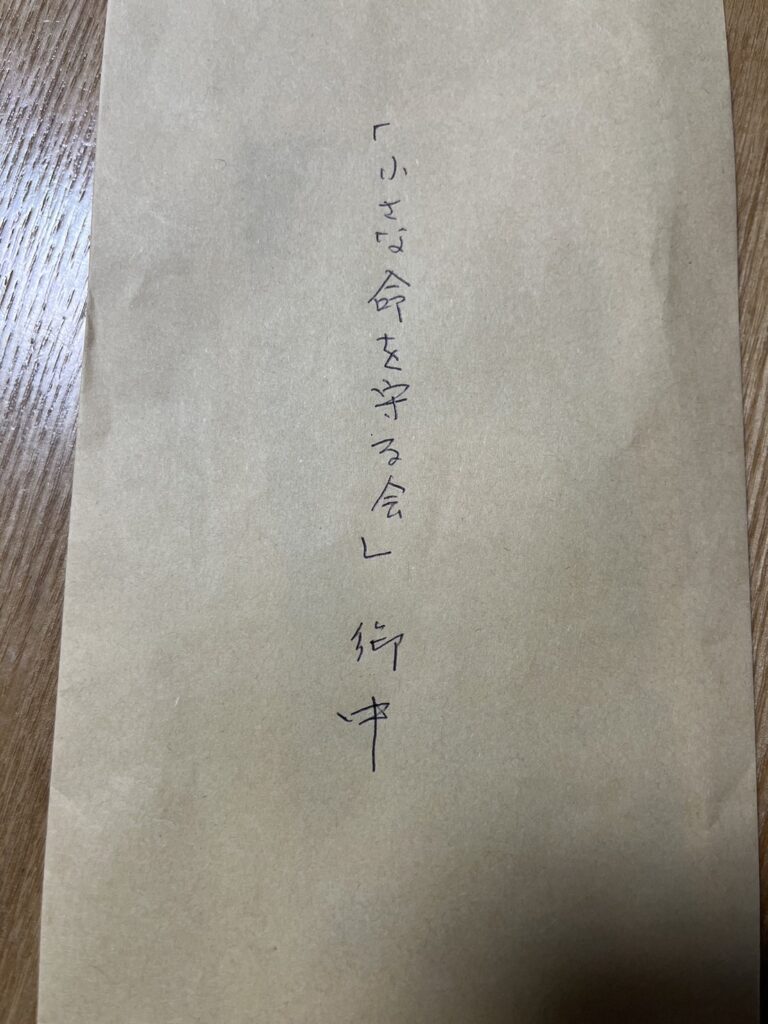 「小さな命を守る会」 御中